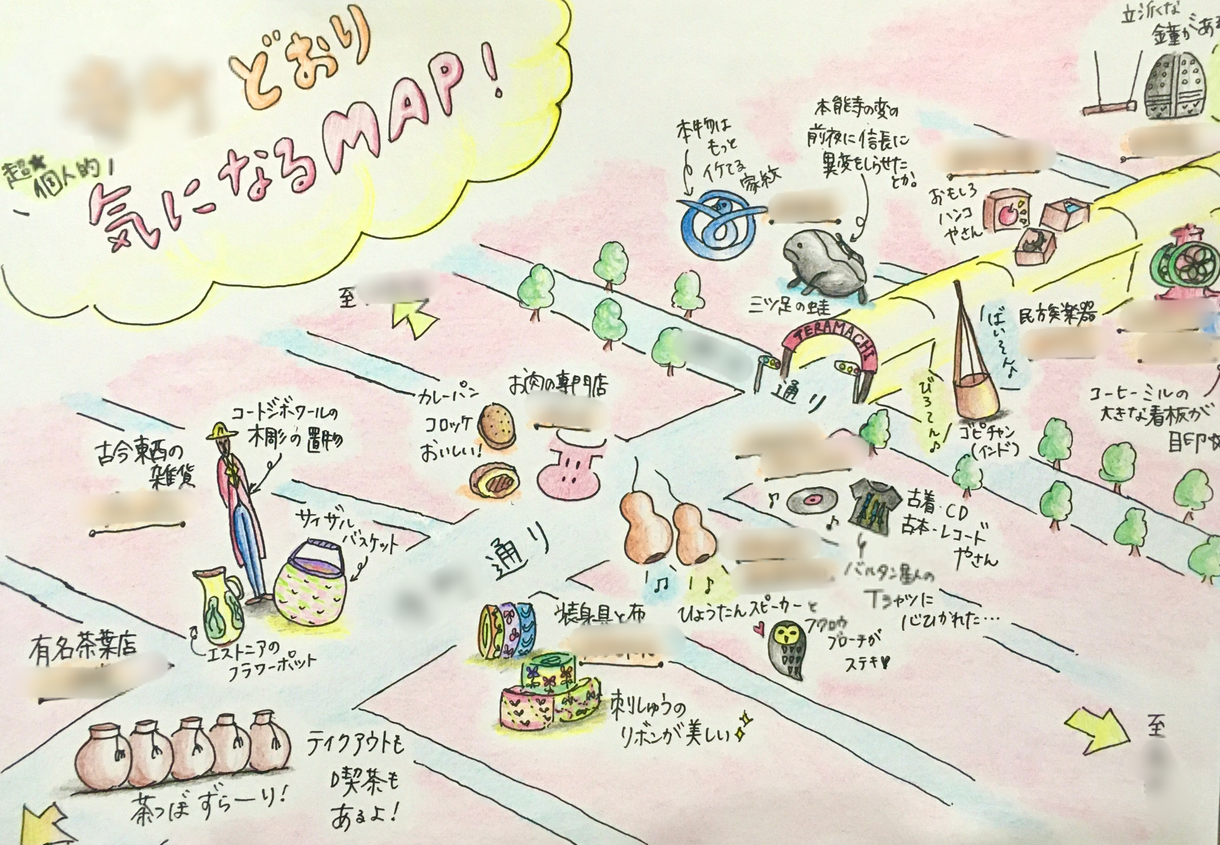 どおり
超★個人的！
気になるMAP！
立派な
鐘がある
本物は
もっと
イケてる
家紋
本能寺の変の
前夜に信長に
異変をしらせた
とか。
三ツ足の蛙
おもしろ
ハンコ
やさん
至
TERAMACHI
通り
びろてん♪
ばいそん♪
民族楽器
ゴピチャン
(インド)
コーヒーミルの
大きな看板が
目印
カレーパン
コロッケ
おいしい!
お肉の専門店
古今東西の
雑貨
コートジボワールの
木彫の置物
サイザル
バスケット
エストニアの
フラワーポット
通り
古着・CD
古本・レコード
やさん
バルタン星人の
Tシャツに
心ひかれた…
ひょうたんスピーカーと
フクロウ
ブローチが
ステキ♥
装身具と布
刺しゅうの
リボンが美しい
有名茶葉店
茶つぼずらーり!
テイクアウトも
喫茶も
あるよ!
至